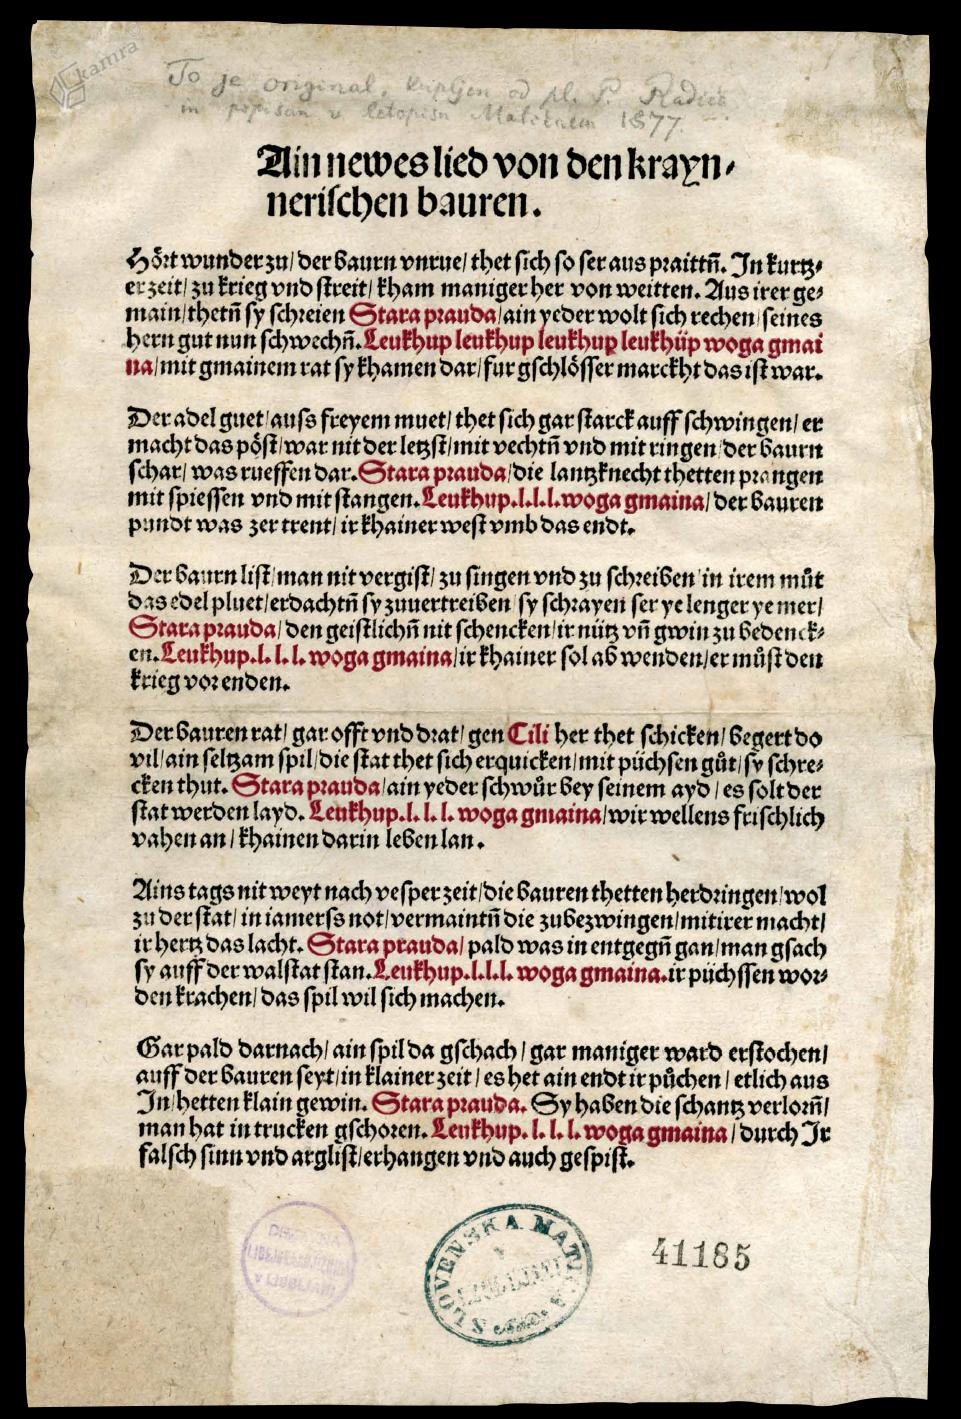 kamra
To je original, kupljen od pl. P. Radicsa
in popisan v letopisu Matičnem 1877.
Ain newes lied von den krayn⸗
nerischen bauren.
Hört wunder zu/ der baurn vnrue/ thet sich so ser aus praittñ. In kurtz⸗
er zeit/ zu krieg vnd streit/ kham maniger her von weitten. Aus irer ge⸗
main/ thetñ sy schreien Stara prauda/ ain yeder wolt sich rechen/ seines
hern gut nun schwechñ. Leukhup leukhup leukhup leukhüp woga gmai
na/ mit gmainem rat sy khamen dar/ fur gschlösser marckht das ist war.
Der adel guet/ auss freyem muet/ thet sich gar starck auff schwingen/ er
macht das pöst/ war nit der letzst/ mit vechtñ vnd mit ringen/ der baurn
schar/ was rueffen dar. Stara prauda/ die lantzknecht thetten prangen
mit spiessen vnd mit stangen. Leukhup.l.l.l. woga gmaina/ der bauren
pundt was zer trent/ ir khainer west vmb das endt.
Der baurn list/ man nit vergist/ zu singen vnd zu schreiben/ in irem můt
das edel pluet/ erdachtñ sy zuuertreiben/ sy schrayen ser ye lenger ye mer/
Stara prauda/ den geistlichñ nit schencken/ ir nütz vñ gwin zu bedenck⸗
en. Leukhup.l. l. l. woga gmaina/ ir khainer sol ab wenden/ er můst den
krieg vor enden.
Der bauren rat/ gar offt vnd drat/ gen Cili her thet schicken/ begert do
vil/ ain seltzam spil/ die stat thet sich erquicken/ mit püchsen gůt/ sy schre⸗
cken thut. Stara prauda/ ain yeder schwůr bey seinem ayd/ es solt der
stat werden layd. Leukhup.l. l. l. woga gmaina/ wir wellens frischlich
vahen an/ khainen darin leben lan.
Ains tags nit weyt nach vesper zeit/ die bauren thetten herdringen/ wol
zu der stat/ in iamerss not/ vermaintñ die zubezwingen/ mit irer macht/
ir hertz das lacht. Stara prauda/ pald was in entgegñ gan/ man gsach
sy auff der walstat stan. Leukhup.l.l.l. woga gmaina. ir püchssen wor⸗
den krachen/ das spil wil sich machen.
Gar pald darnach/ ain spil da gschach/ gar maniger ward erstochen/
auff der bauren seyt/ in klainer zeit/ es het ain endt ir půchen/ etlich aus
In/ hetten klain gewin. Stara prauda. Sy haben die schantz verlorñ/
man hat in trucken gschoren. Leukhup. l. l. l. woga gmaina/ durch Ir
falsch sinn vnd arglist/ erhangen vnd auch gespist.
SLOVENSKA MATICA
V LJUBLJANI
41185